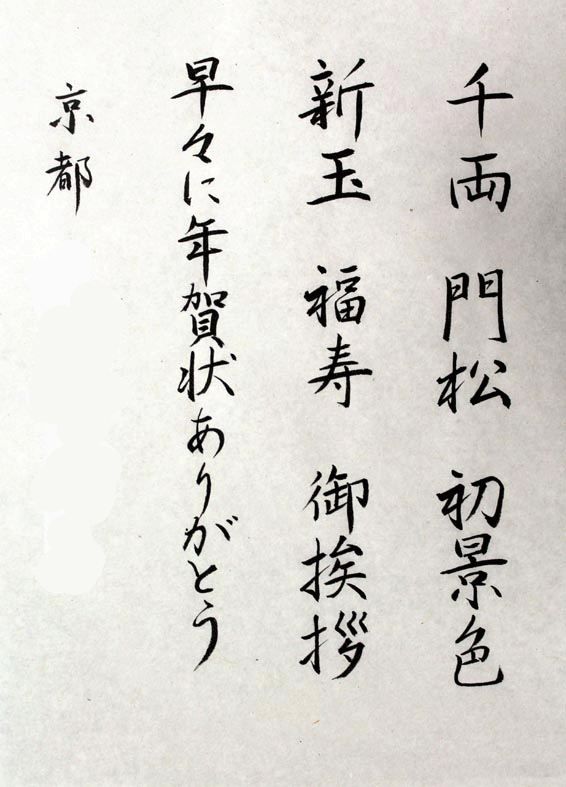 千両 門松 初景色
新玉 福寿 御挨拶
早々に年賀状ありがとう
京都